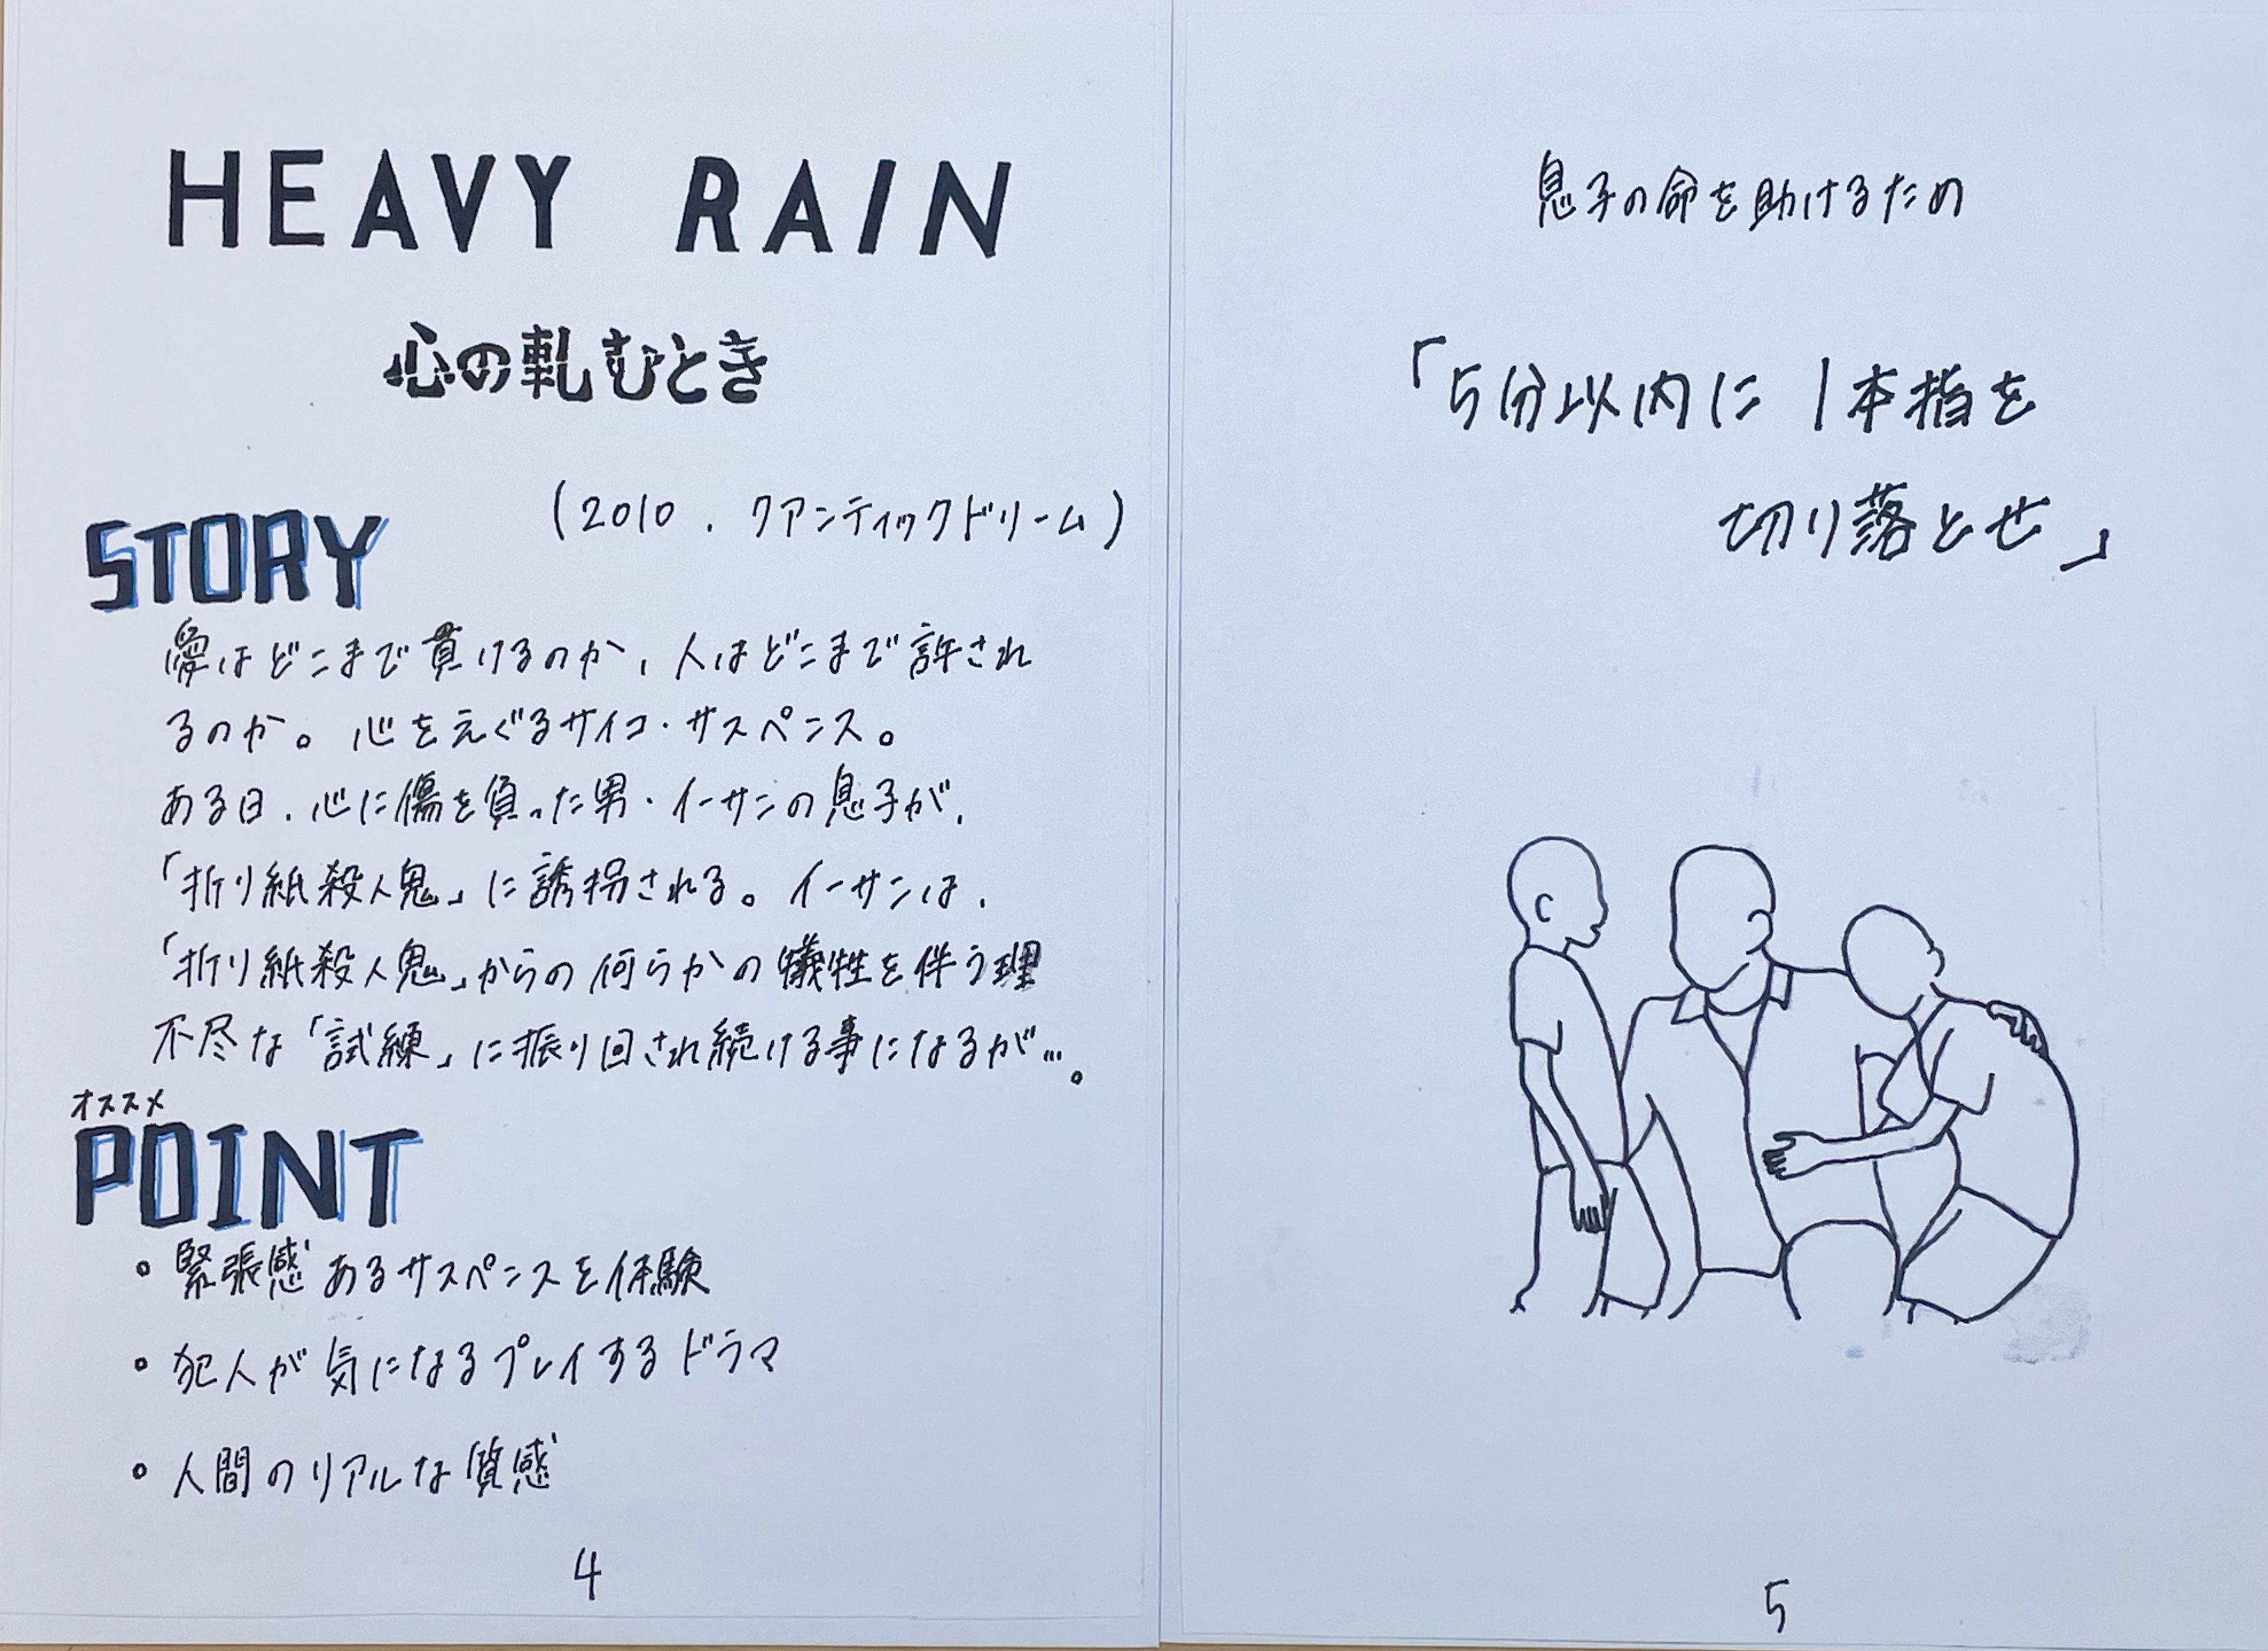 HEAVY RAIN
心の軋むとき
(2010.クアンティックドリーム)
STORY
愛はどこまで貫けるのか、人はどこまで許され
るのか。心をえぐるサイコ・サスペンス。
ある日、心に傷を負った男・イーサンの息子が、
「折り紙殺人鬼」に誘拐される。イーサンは、
「折り紙殺人鬼」からの何らかの犠牲を伴う理
不尽な「試練」に振り回され続ける事になるが…。
オススメ
POINT
・緊張感あるサスペンスを体験
・犯人が気になるプレイするドラマ
・人間のリアルな質感
4
息子の命を助けるため
「5分以内に1本指を
切り落とせ」
5